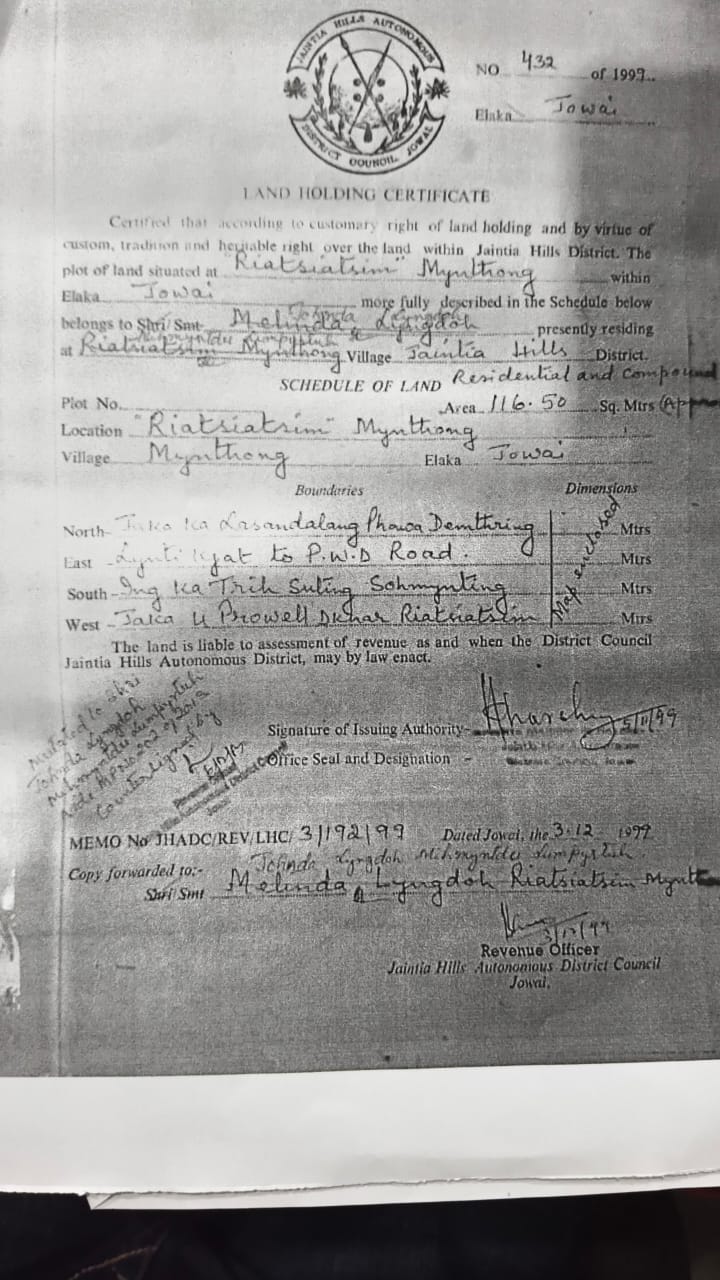 JAINTIA HILLS AUTONOMOUS
DISTRICT COUNCIL JOWAI
NO 432 of 1999
Elaka Jowai
LAND HOLDING CERTIFICATE
Certified that according to customary right of land holding and by virtue of
custom, tradition and heritable right over the land within Jaintia Hills District. The
plot of land situated at "Riatsiatsim" Mynthong within
Elaka Jowai more fully described in the Schedule below
Lyngdoh
belongs to Shri/Smt Melinda Lyngdoh presently residing
at Riatsiatsim Mynthong Village Jaintia Hills District.
SCHEDULE OF LAND Residential and Compound
Plot No. Area 116.50 Sq. Mtrs
Location "Riatsiatsim" Mynthong
Village Mynthong Elaka Jowai
Boundaries Dimensions
North- Jaka Ka Lasandalang Phawa Demthring Mtrs
East Lynti Kjat to P.W.D Road. Mtrs
South- Ing Ka Trih Suting Sohmynting Mtrs
West- Jaka U Prowell Dkhar Riatsiatsim Mtrs
Map enclosed
The land is liable to assessment of revenue as and when the District Council
Jaintia Hills Autonomous District, may by law enact.
Mutated to Shri
Lyngdoh
Countersigned by
Signature of Issuing Authority-
Office Seal and Designation -
MEMO No JHADC/REV/LHC/ 3/192/99 Dated Jowai, the 3-12 1999
Lyngdoh
Copy forwarded to:-
Shri/Smt Melinda Lyngdoh Riatsiatsim
3/12/99
Revenue Officer
Jaintia Hills Autonomous District Council
Jowai.